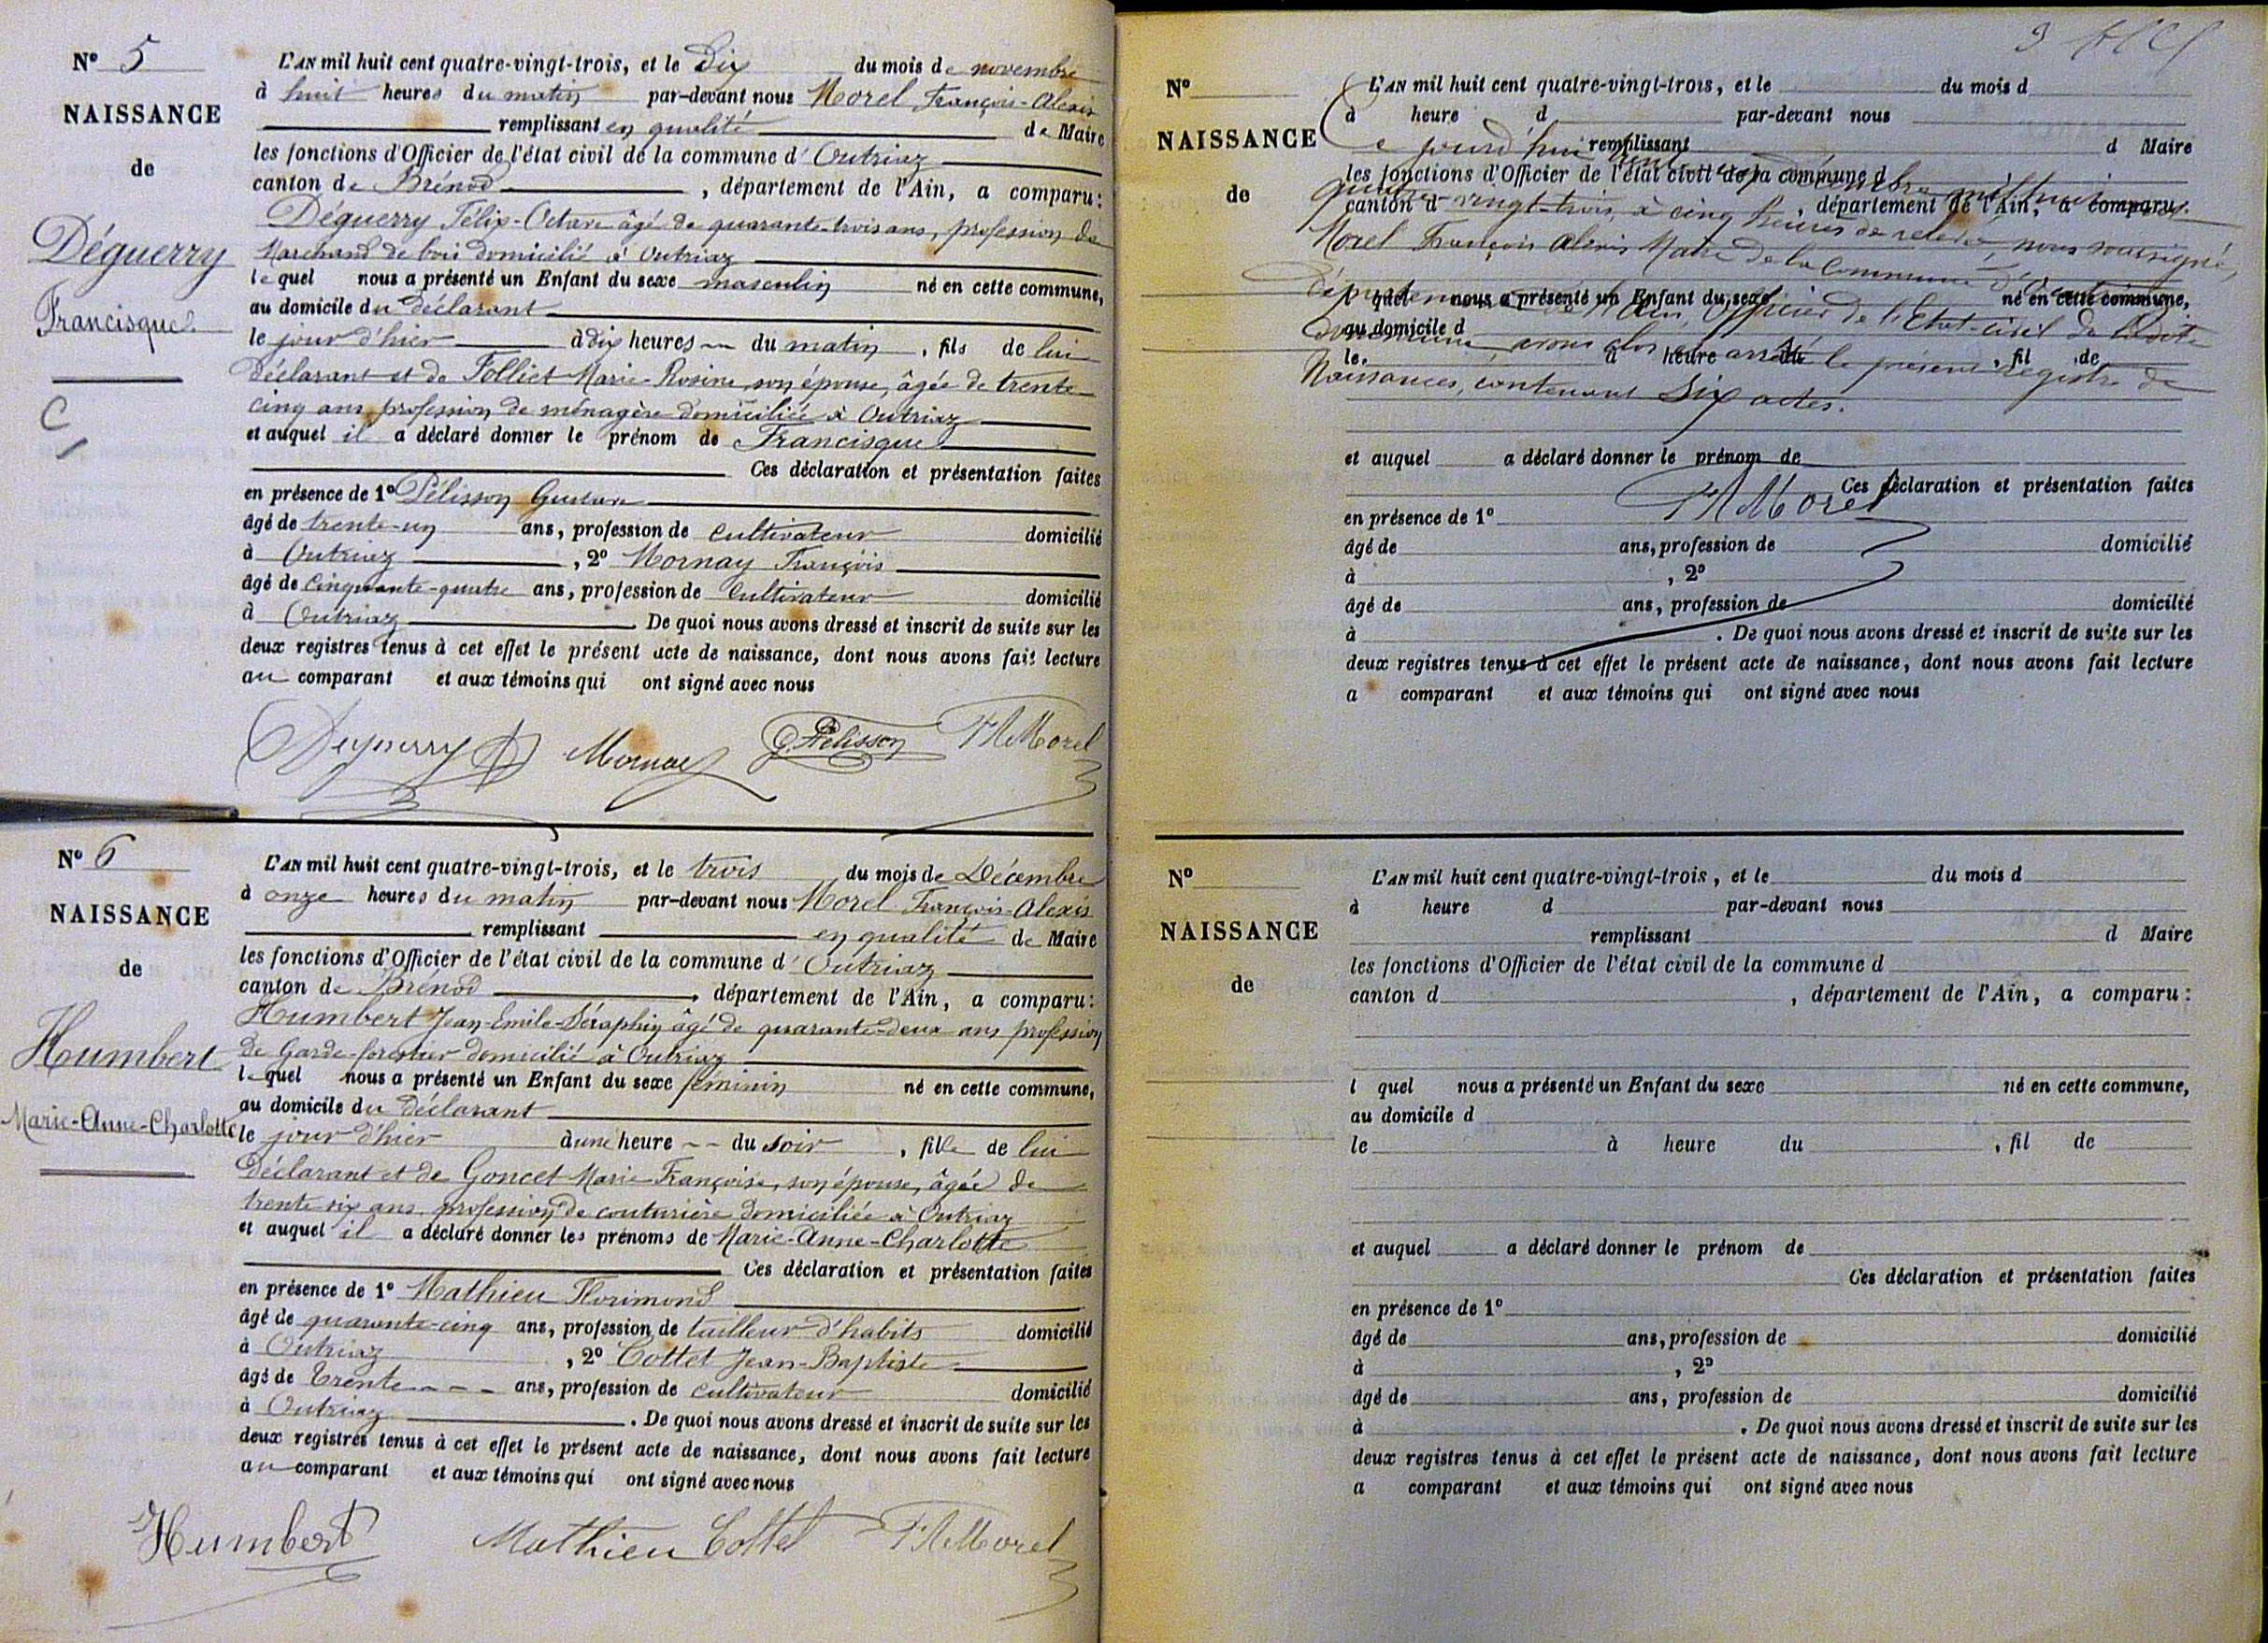 N° 5
NAISSANCE
de
Déguerry
Francisque
L'AN mil huit cent quatre-vingt-trois, et le Dix du mois de novembre
à huit heures du matin par-devant nous Morel François-Alexis
remplissant en qualité de Maire
les fonctions d'Officier de l'état civil de la commune d'Outriaz
canton de Brénod, département de l'Ain, a comparu:
Déguerry Félix-Octave âgé de quarante-trois ans, profession de
Marchand de bois domicilié à Outriaz
lequel nous a présenté un Enfant du sexe masculin né en cette commune,
au domicile du déclarant
le jour d'hier à dix heures du matin, fils de lui
déclarant et de Folliet Marie-Rosine, son épouse, âgée de trente
cinq ans, profession de ménagère domiciliée à Outriaz
et auquel il a déclaré donner le prénom de Francisque
Ces déclaration et présentation faites
en présence de 1° Pélisson Gustave
âgé de trente-un ans, profession de cultivateur domicilié
à Outriaz, 2° Mornay François
âgé de cinquante-quatre ans, profession de cultivateur domicilié
à Outriaz. De quoi nous avons dressé et inscrit de suite sur les
deux registres tenus à cet effet le présent acte de naissance, dont nous avons fait lecture
au comparant et aux témoins qui ont signé avec nous
Déguerry Mornay G. Pélisson FAMorel
N° 6
NAISSANCE
de
Humbert
Marie-Anne-Charlotte
L'AN mil huit cent quatre-vingt-trois, et le trois du mois de Décembre
à onze heures du matin par-devant nous Morel François-Alexis
remplissant en qualité de Maire
les fonctions d'Officier de l'état civil de la commune d'Outriaz
canton de Brénod, département de l'Ain, a comparu:
Humbert Jean-Emile-Séraphin âgé de quarante-deux ans profession
de Garde-forestier domicilié à Outriaz
lequel nous a présenté un Enfant du sexe féminin né en cette commune,
au domicile du déclarant
le jour d'hier à une heure du soir, fille de lui
déclarant et de Goncet Marie-Françoise, son épouse, âgée de
trente six ans, profession de couturière domiciliée à Outriaz
et auquel il a déclaré donner les prénoms de Marie-Anne-Charlotte
Ces déclaration et présentation faites
en présence de 1° Mathieu Florimond
âgé de quarante-cinq ans, profession de tailleur d'habits domicilié
à Outriaz, 2° Cottet Jean-Baptiste
âgé de Trente ans, profession de cultivateur domicilié
à Outriaz. De quoi nous avons dressé et inscrit de suite sur les
deux registres tenus à cet effet le présent acte de naissance, dont nous avons fait lecture
au comparant et aux témoins qui ont signé avec nous
Humbert Mathieu Cottet FAMorel
N°
NAISSANCE
de
L'AN mil huit cent quatre-vingt-trois, et le du mois d
à heure d par-devant nous
remplissant d Maire
Ce jourd'hui trente
les fonctions d'Officier de l'état civil de la commune d
décembre mil huit cent
canton d, département de l'Ain, a comparu:
quatre-vingt-trois, à cinq heures de relevée, nous soussigné,
Morel François Alexis Maire de la Commune d'Outriaz,
l quel nous a présenté un Enfant du sexe né en cette commune,
département de l'Ain, Officier de l'Etat-civil de ladite
au domicile d
commune, avons clos et arrêté le présent Registre de
le à heure du, fil de
Naissances, contenant Six actes.
et auquel a déclaré donner le prénom de
Ces déclaration et présentation faites
FAMorel
en présence de 1°
âgé de ans, profession de domicilié
à, 2°
âgé de ans, profession de domicilié
à. De quoi nous avons dressé et inscrit de suite sur les
deux registres tenus à cet effet le présent acte de naissance, dont nous avons fait lecture
a comparant et aux témoins qui ont signé avec nous
N°
NAISSANCE
de
L'AN mil huit cent quatre-vingt-trois, et le du mois d
à heure d par-devant nous
remplissant d Maire
les fonctions d'Officier de l'état civil de la commune d
canton d, département de l'Ain, a comparu:
l quel nous a présenté un Enfant du sexe né en cette commune,
au domicile d
le à heure du, fil de
et auquel a déclaré donner le prénom de
Ces déclaration et présentation faites
en présence de 1°
âgé de ans, profession de domicilié
à, 2°
âgé de ans, profession de domicilié
à. De quoi nous avons dressé et inscrit de suite sur les
deux registres tenus à cet effet le présent acte de naissance, dont nous avons fait lecture
a comparant et aux témoins qui ont signé avec nous